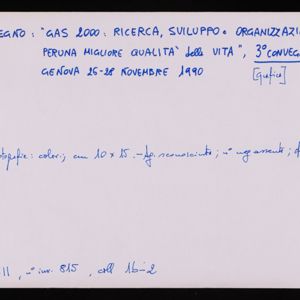 EGNO: "GAS 2000: RICERCA, SVILUPPO e ORGANIZZAZIO
PER UNA MIGLIORE QUALITA' della VITA", 3° CONVEG
GENOVA 26-28 NOVEMBRE 1990 [grafica]
tografie: colori; cm 10 x 15. - fg. sconosciuto; n° neg. assente;
II, n° inv. 815, coll 1b-2